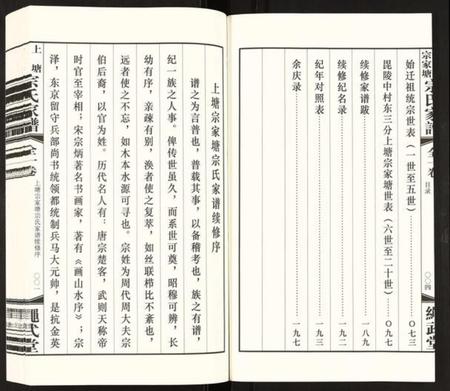 宗家塘宗氏家譜
全一卷
目录
〇〇四
繩武堂
始迁祖统宗世表（一世至五世）
〇七三
毘陵中村东三分上塘宗家塘世表（六世至二十世）
〇九七
续修家谱跋
一八九
续修纪名录
一九二
纪年对照表
一九三
余庆录
一九七
上塘宗家塘宗氏家谱续修序
谱之为言普也，普载其事，以备稽考也，族之有谱，
纪一族之人事。俾传世虽久，而系世可奠，昭穆可辨，长
幼有序，亲疎有别，涣者使之复萃，如丝联栉比不紊也，
远者使之不忘，如木本水源可寻也。宗姓为周代周大夫宗
伯后裔，以官为姓。历代名人有：唐宗楚客，武则天称帝
时官至宰相；宋宗炳著名书画家，著有《画山水序》；宗
泽，东京留守兵部尚书统领都统制兵马大元帅，是抗金英
上塘宗氏家譜
全一卷
上塘宗家塘宗氏家谱续修序
〇〇一
繩武堂